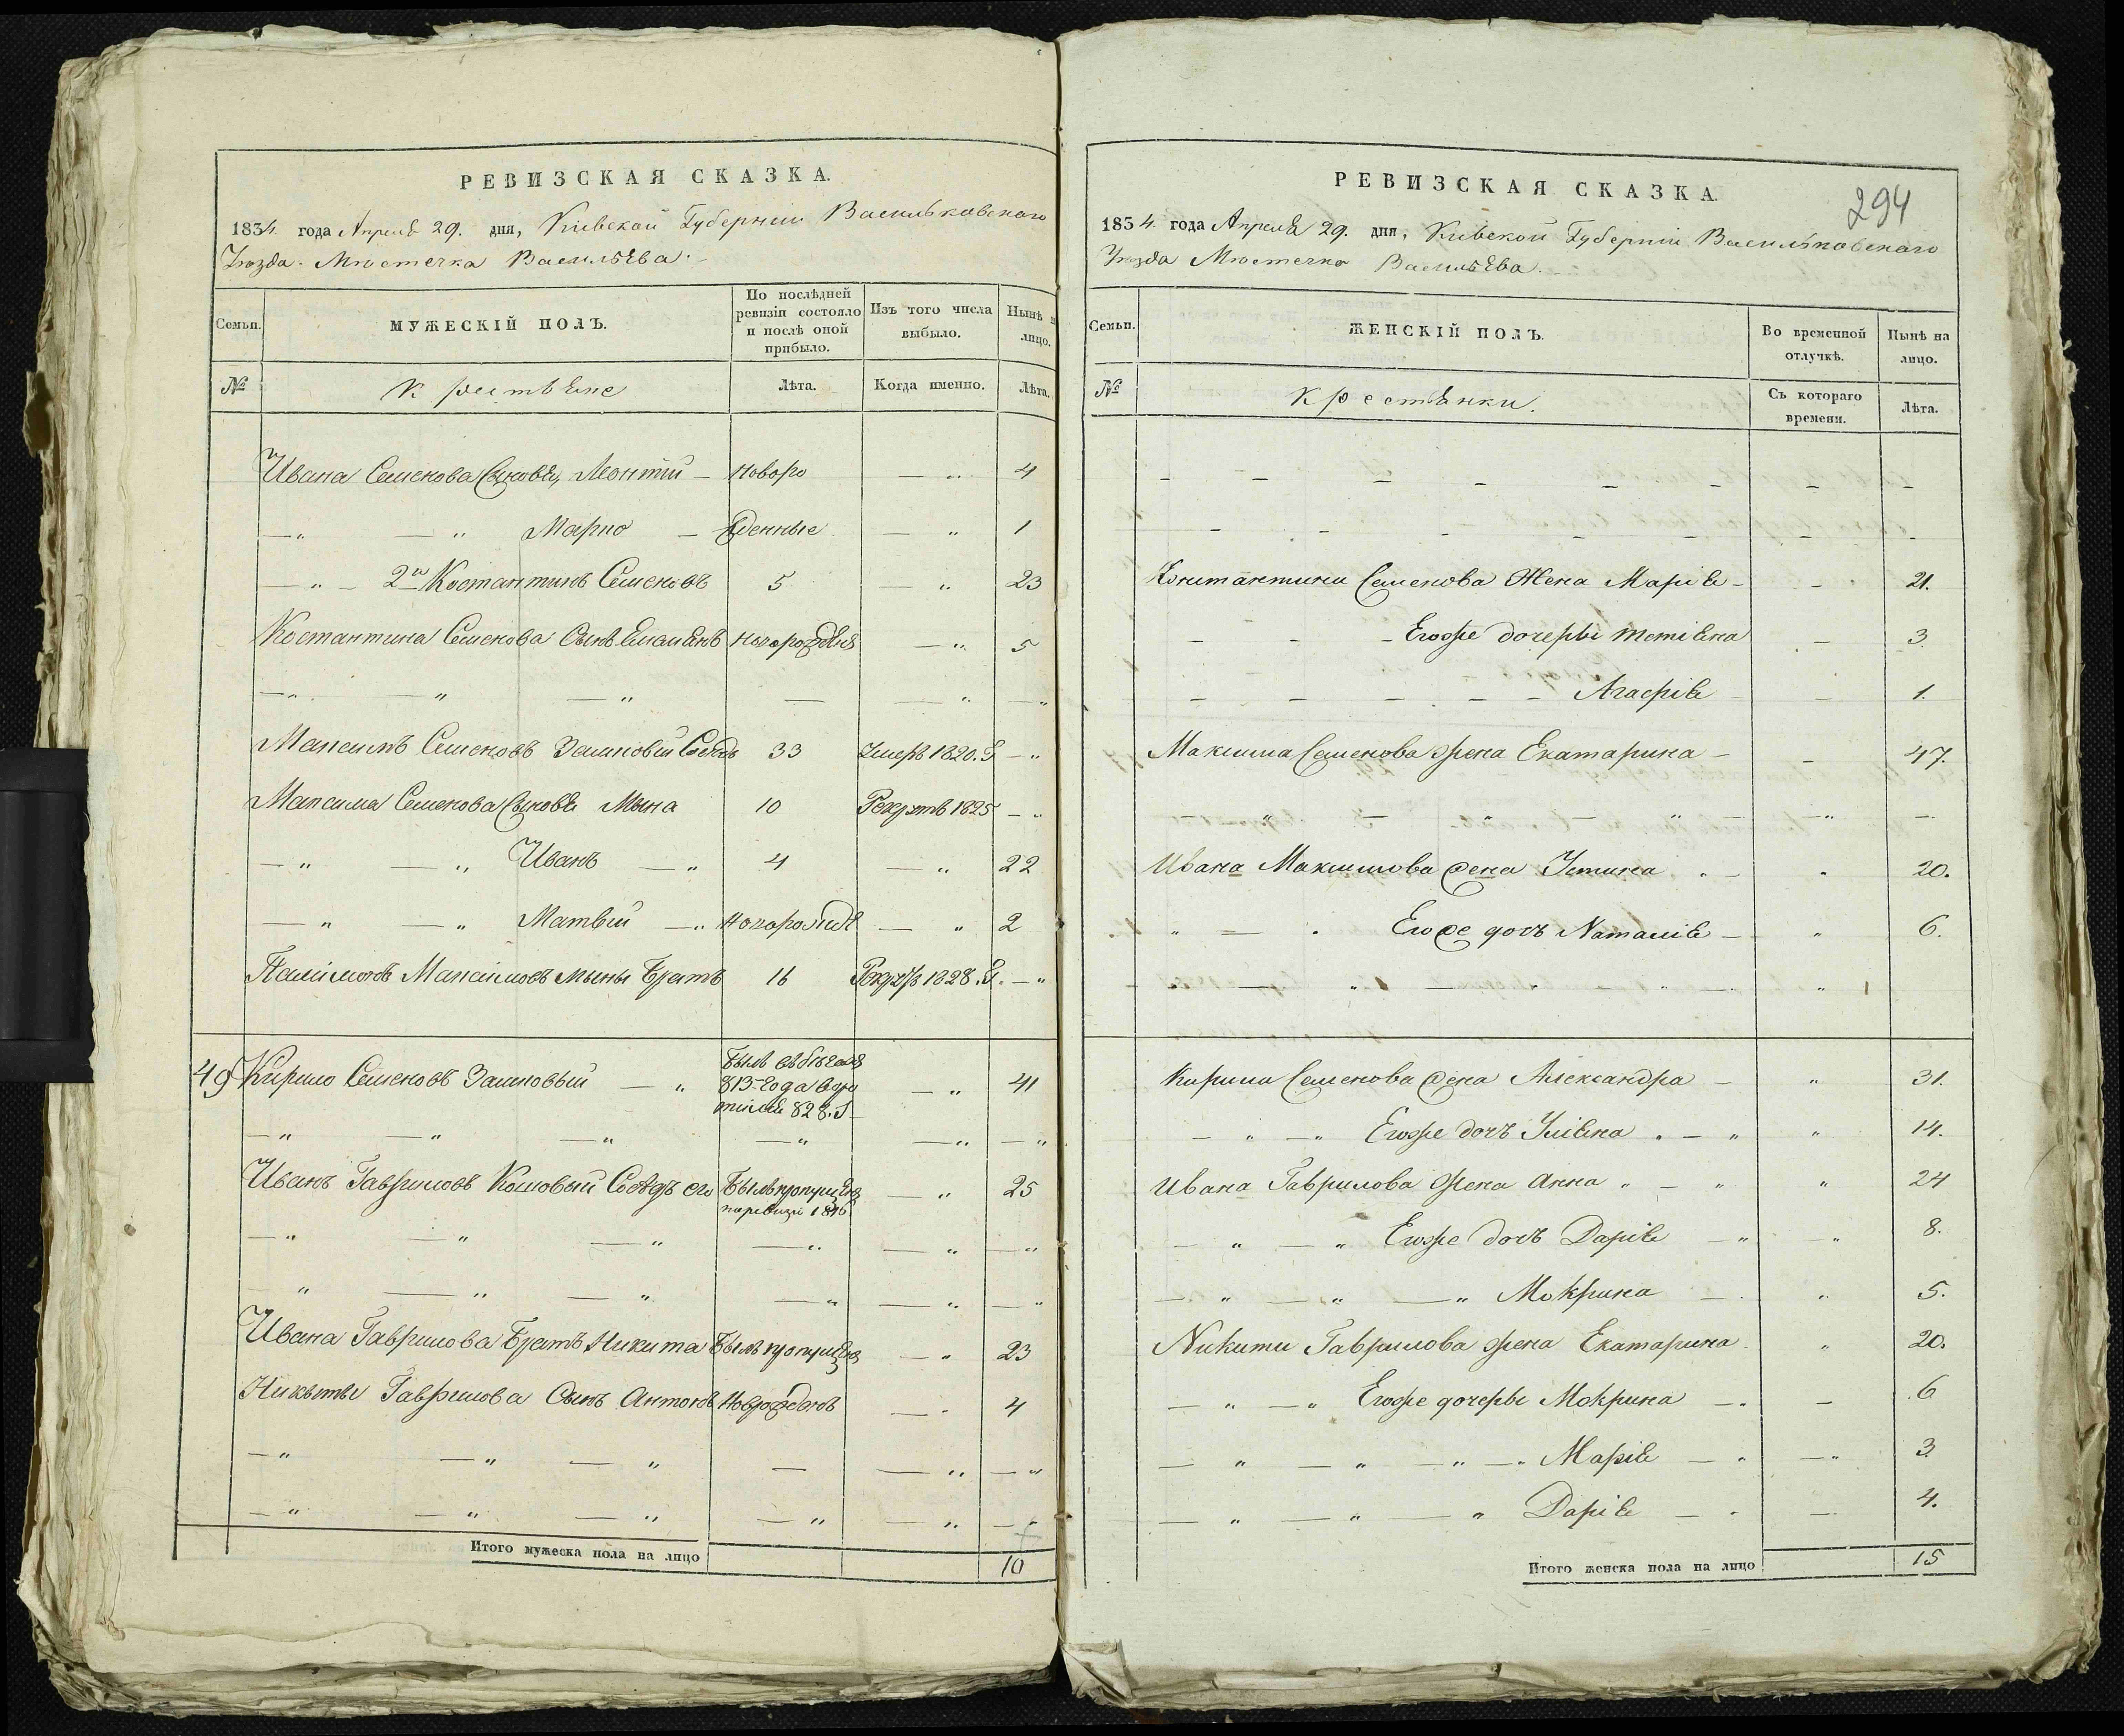 РЕВИЗСКАЯ СКАЗКА.
1834. года Апреля 29. дня, Кіевской Губерніи Васильковского
Уезда. Мюстечка Васильева.
Семьи. МУЖЕСКІЙ ПОЛЪ. По послѣдней ревизіи состояло и послѣ оной прибыло. Изъ того числа выбыло. Нынѣ н лицо.
№ Крестьяне Лѣта. Когда именно. Лѣта.
Ивана Семенова Сыновья, Леонтій - Новоро — „ 4
— „ — „ Марко - жденные — „ 1
— „ — 2й Костантинъ Семеновъ 5 „ 23
Костантина Семенова Сынъ Емелянъ Новорожденъ — „ 5
— „ — „ — „ — — „ — „
Максимъ Семеновъ Замковый Соседъ 33 Умеръ 1820. Г — „
Максима Семенова Сыновья Мына 10 Рекрутъ 1825 — „
— „ — „ Иванъ — „ 4 — „ 22
— „ — „ Матвій — „ Новорожде — „ 2
Палимонъ Максимовъ мыны Братъ 16 Рекру 1828. Г. — „
49 Кирило Семеновъ Замковый — „ Былъ въ бегахъ — „ 41
813 года воро
тился 828. Г
— „ — „ — „ — „ — „ — „
Иванъ Гавриловъ Кошовый Соседъ его Былъ пропущенъ — „ 25
по ревизіи 1816
— „ — „ — „ — „ — „ — „
— „ — „ — „ — „ — „ — „
Ивана Гаврилова Братъ Никита Былъ пропущенъ — „ 23
Никыты Гаврилова Сынъ Антонъ Новорожденъ — „ 4
— „ — „ — „ — — „ — „
— „ — „ — „ — „ — „ — „
Итого мужеска пола на лицо 10
294
РЕВИЗСКАЯ СКАЗКА
1834. года Апреля 29. дня, Кіевской Губерніи Васильковскаго
Уезда Мюстечка Васильева.
Семьи. ЖЕНСКІЙ ПОЛЪ. Во временной отлучкѣ. Нынѣ на лицо.
№ Крестянки. Съ котораго времени. Лѣта.
- - - - - - - -
- - - - - - -
Константина Семенова Жена Марія - - 21.
- - - Егоже дочеры Тетіяна - 3
- - - - - Агафія - - 1.
Максима Семенова жена Екатарина - - 47.
— „ — „ — „ — „ —
Ивана Максимова жена Устина „ - „ 20.
„ — „ Егоже дочъ Наталія - „ 6.
— „ — „ „ — „
Кирила Семенова жена Александра - „ 31.
— „ — „ Егоже дочъ Уліяна „ — „ „ 14.
Ивана Гаврилова жена Анна „ — „ „ 24
— „ — „ Егоже дочъ Дарія — „ — „ 8.
— „ — „ — „ Мокрина — „ 5.
Никити Гаврилова жена Екатарина „ 20.
— „ — „ Егоже дочеры Мокрина — „ — 6
— „ — „ — „ — „ Марія — „ — „ 3
— „ — „ — „ Дарія — „ — 4.
Итого женска пола на лицо 15